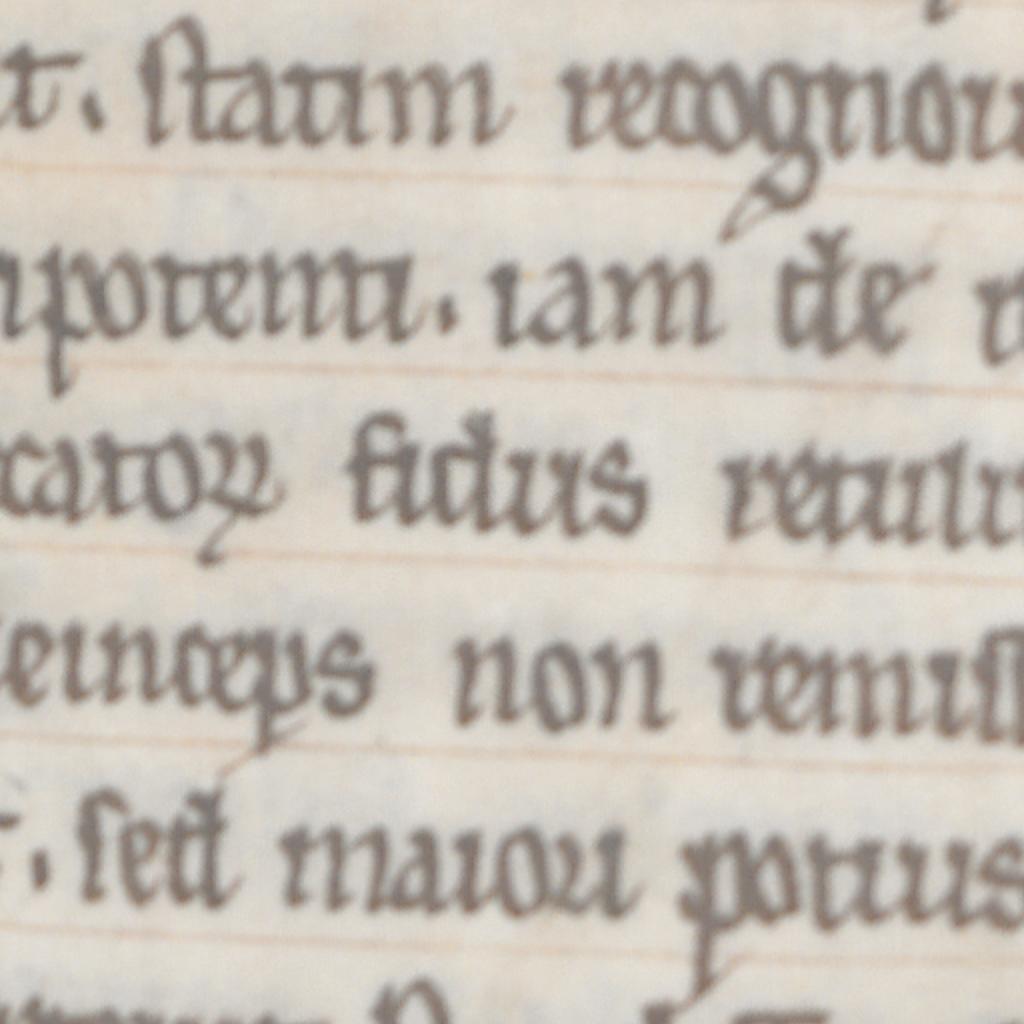 t. statim recognou
ipotenti. iam de
catoꝝ fidus retuli
einceps non remiss
. sed maiori potius